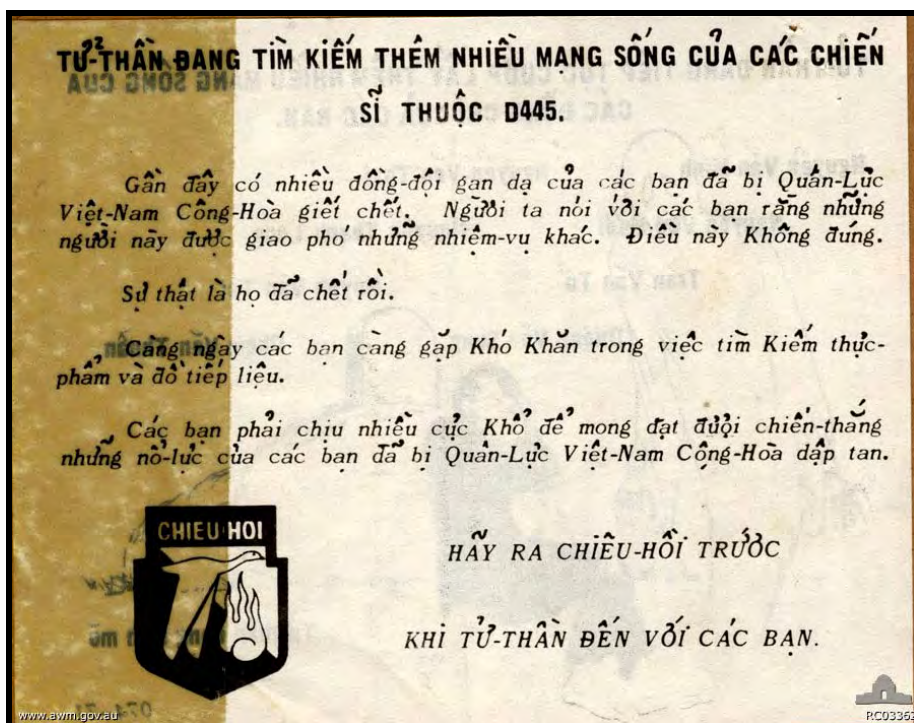 TỬ-THẦN ĐANG TÌM KIẾM THÊM NHIỀU MẠNG SỐNG CỦA CÁC CHIẾN
SĨ THUỘC D445.
Gần đây có nhiều đồng-đội gan dạ của các bạn đã bị Quân-Lực
Việt-Nam Cộng-Hòa giết chết. Người ta nói với các bạn rằng những
người này được giao phó những nhiệm-vụ khác. Điều này Không đúng.
Sự thật là họ đã chết rồi.
Càng ngày các bạn càng gặp Khó Khăn trong việc tìm Kiếm thực-
phẩm và đồ tiếp liệu.
Các bạn phải chịu nhiều cực Khổ để mong đạt đuợi chiến-thắng
những nỗ-lực của các bạn đã bị Quân-Lực Việt-Nam Cộng-Hòa dập tan.
CHIEU HOI
HÃY RA CHIÊU-HỒI TRƯỚC
KHI TỬ-THẦN ĐẾN VỚI CÁC BẠN.
www.awm.gov.au